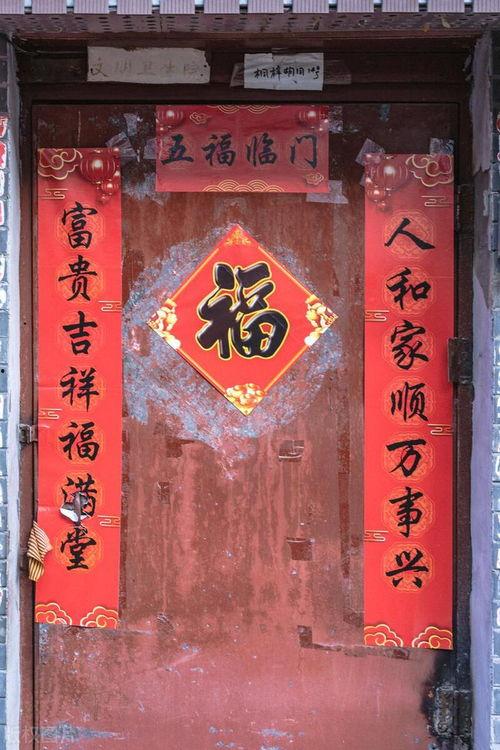 文明卫生院
桐梓胡同14号
五福临门
人和家顺万事兴
富贵吉祥福满堂
福